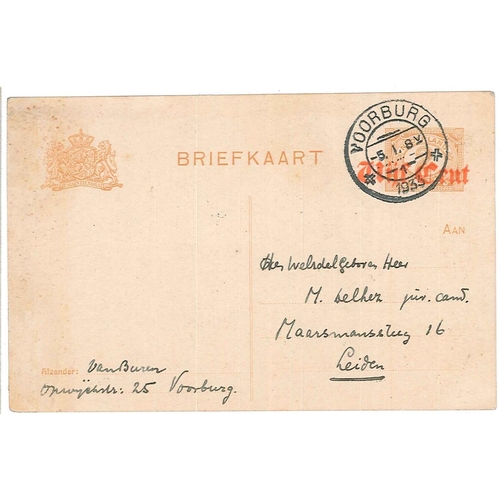 BRIEFKAART
VOORBURG
-5.1.8V
1
1933
Vijf Cent
AAN
Den Weledelgeboren Heer
M. Delhez jur. cand.
Maarsmanssteeg 16
Leiden
Afzender: van Buren
Opwijckstr: 25 Voorburg.